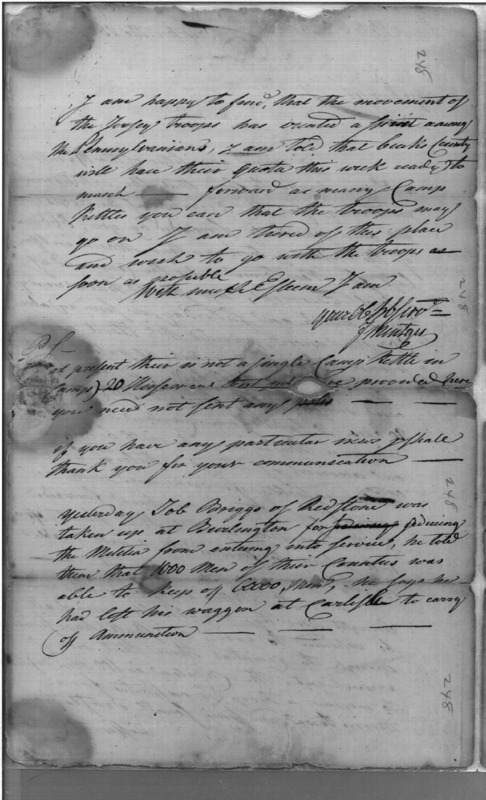 248
I am happy to find, that the movement of
the Jersey troops has created a spirit among
the Pennsylvanians, I am told that Bucks County
will have their Quota this week ready to
march — forward as many Camp
Kettles you can that the troops may
go on I am tired of this place
and wish to go with the troops as
soon as possible
With much Esteem I am
your Ob Serv
PS
at present their is not a single Camp Kettle in
Camp, 20 be provided here
you need not sent any — —
if you have any particular news I shall
thank you for your communication —
248
Yesterday Job Briggs of Redstone was
taken up at Burlington for
the Melitia from entering into Service, he told
them that 1000 Men of their Counties was
able to keep of 6000, he says he
had left his waggon at Carlisle to carry
of Ammunition — — —
248